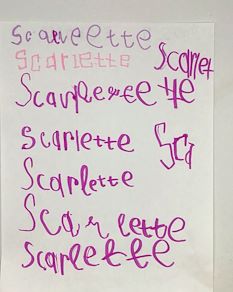 Scaveette
Scarlette
Scarlet
Scarlette
Sca
Scarlette
Scarlette
Scarlette